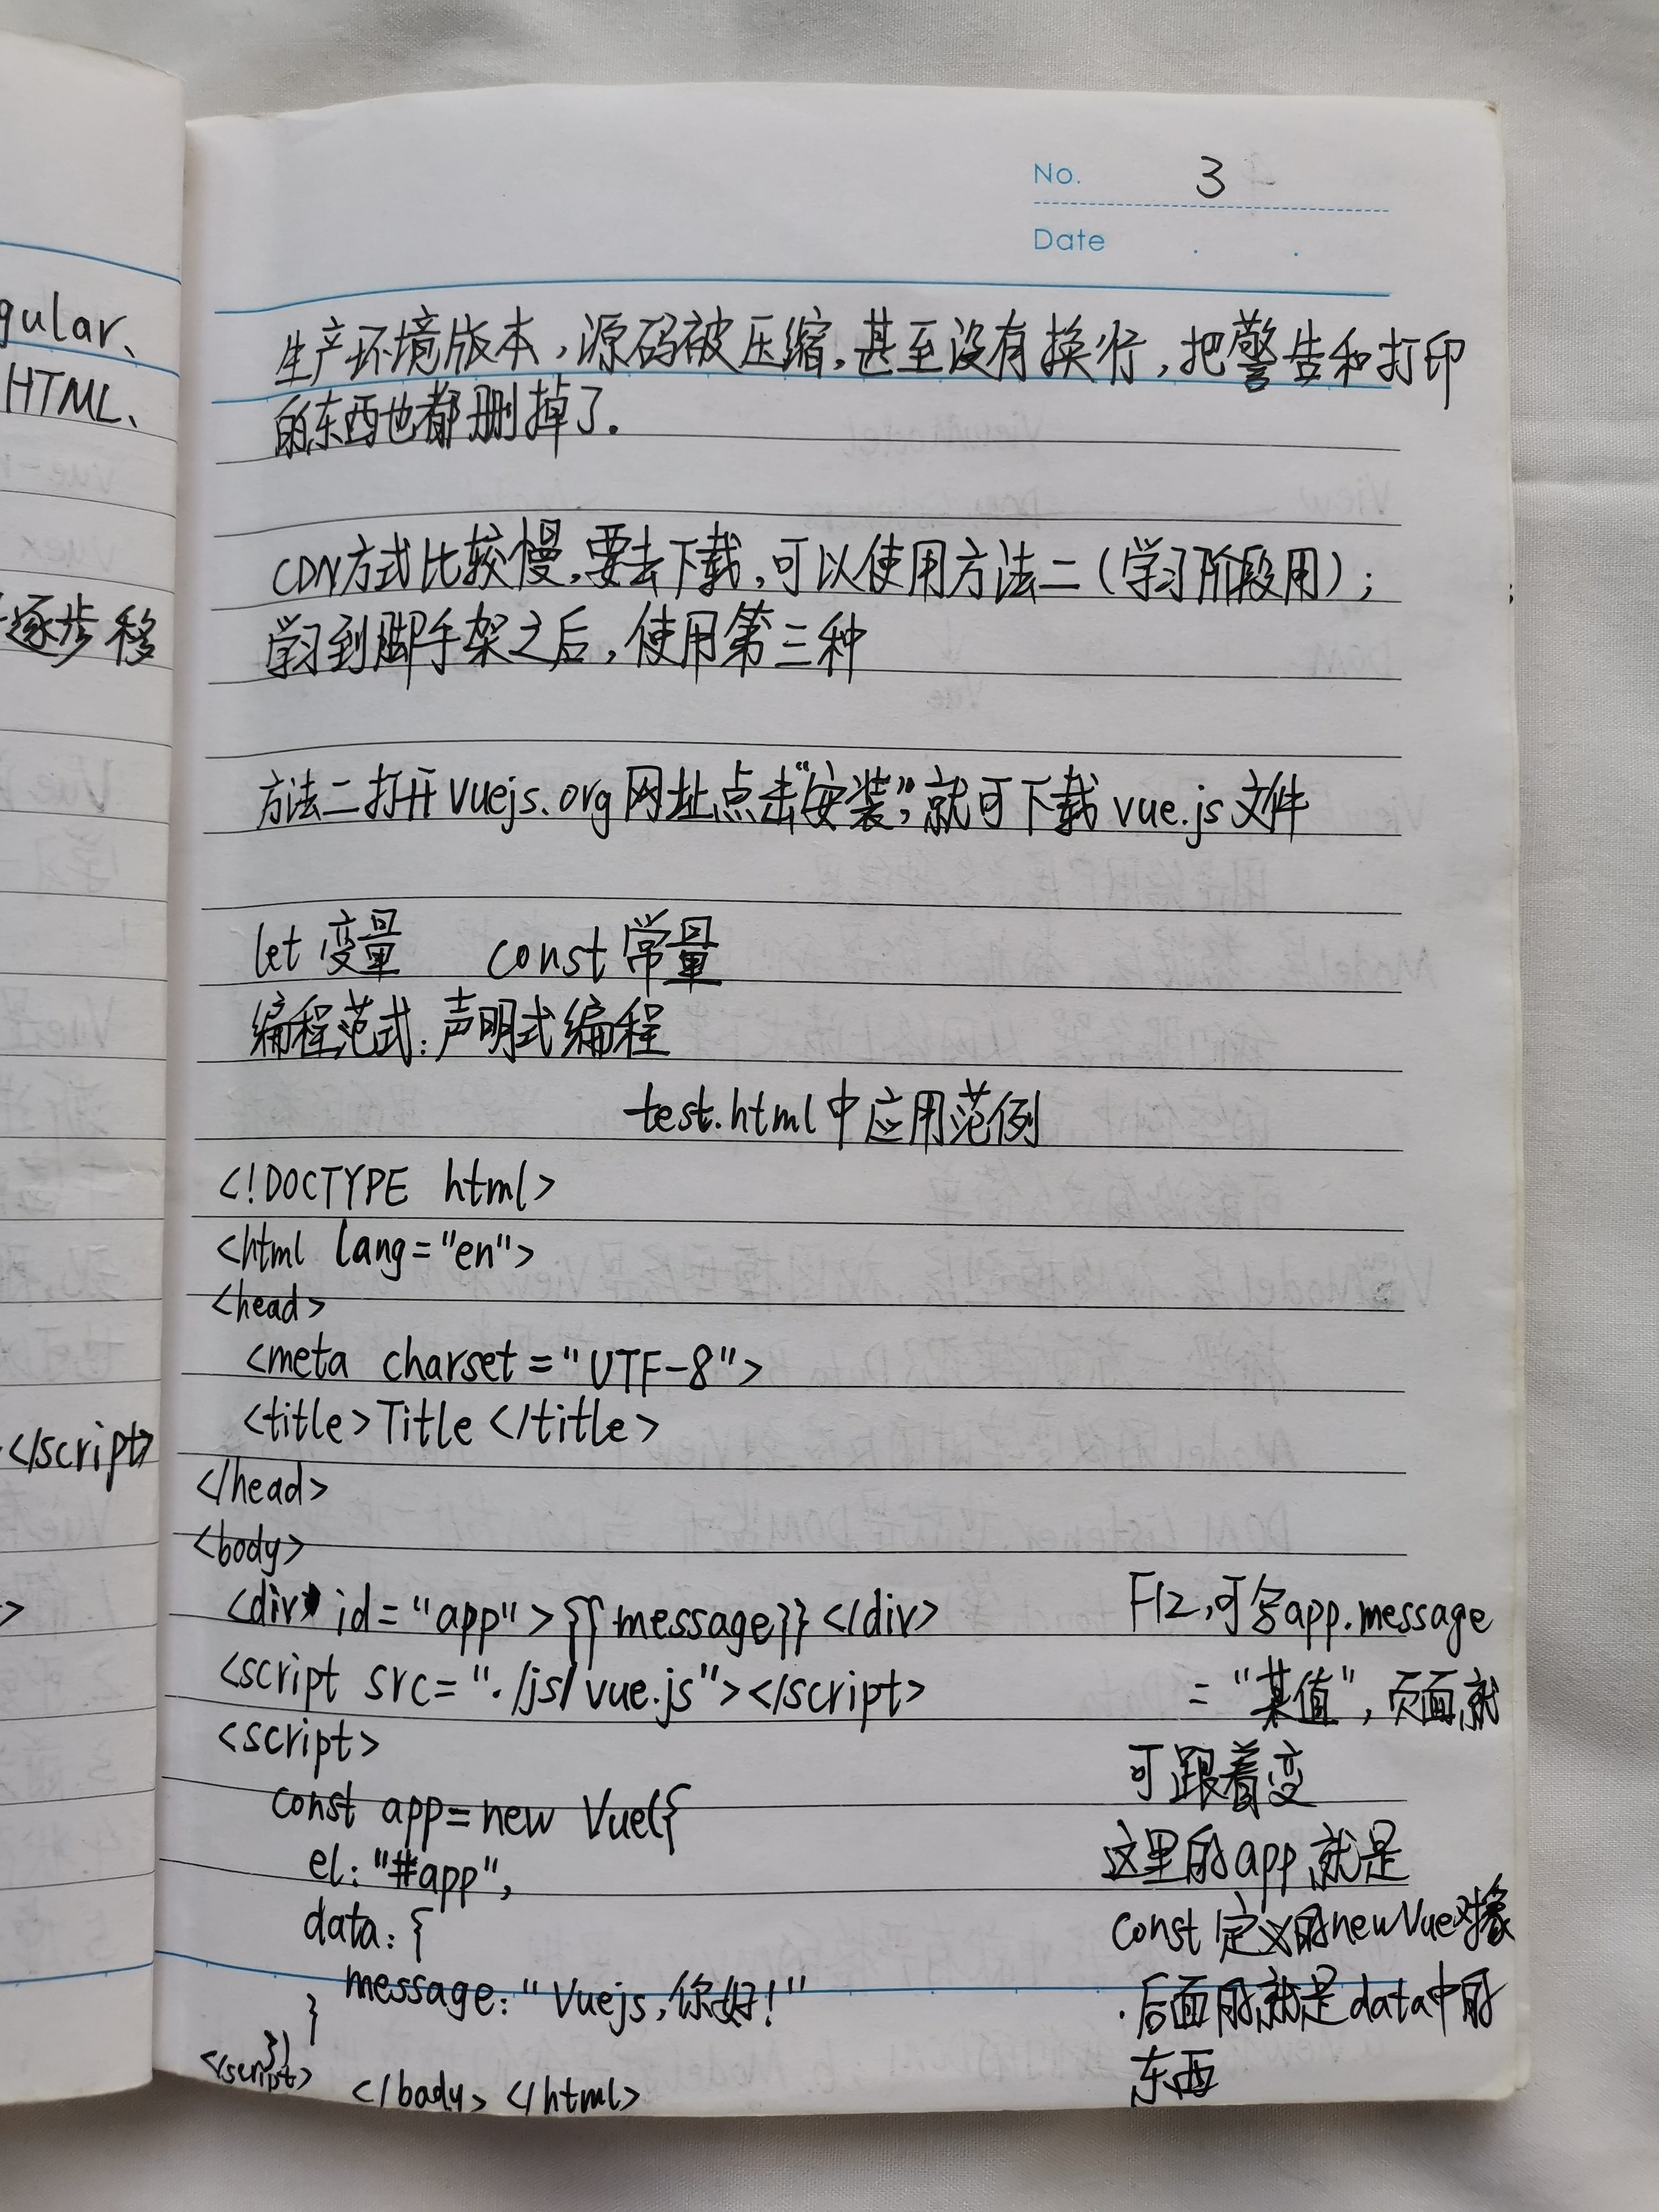 gular、
HTML、
逐步移
</script>
>
No. 3
Date . .
生产环境版本,源码被压缩,甚至没有换行,把警告和打印
的东西也都删掉了.
CDN方式比较慢,要去下载,可以使用方法二(学习阶段用);
学习到脚手架之后,使用第三种
方法二打开vuejs.org网址点击“安装”,就可下载vue.js文件
let变量 const常量
编程范式:声明式编程
test.html中应用范例
<!DOCTYPE html>
<html lang="en">
<head>
<meta charset="UTF-8">
<title>Title</title>
</head>
<body>
<div id="app">{{message}}</div>
<script src="./js/vue.js"></script>
<script>
const app=new Vue({
el:"#app",
data:{
message:"Vuejs,你好!"
}
})
</script>
</body></html>
F12,可写app.message
="某值",页面就
可跟着变
这里的app就是
const定义的newVue对象
.后面的就是data中的
东西